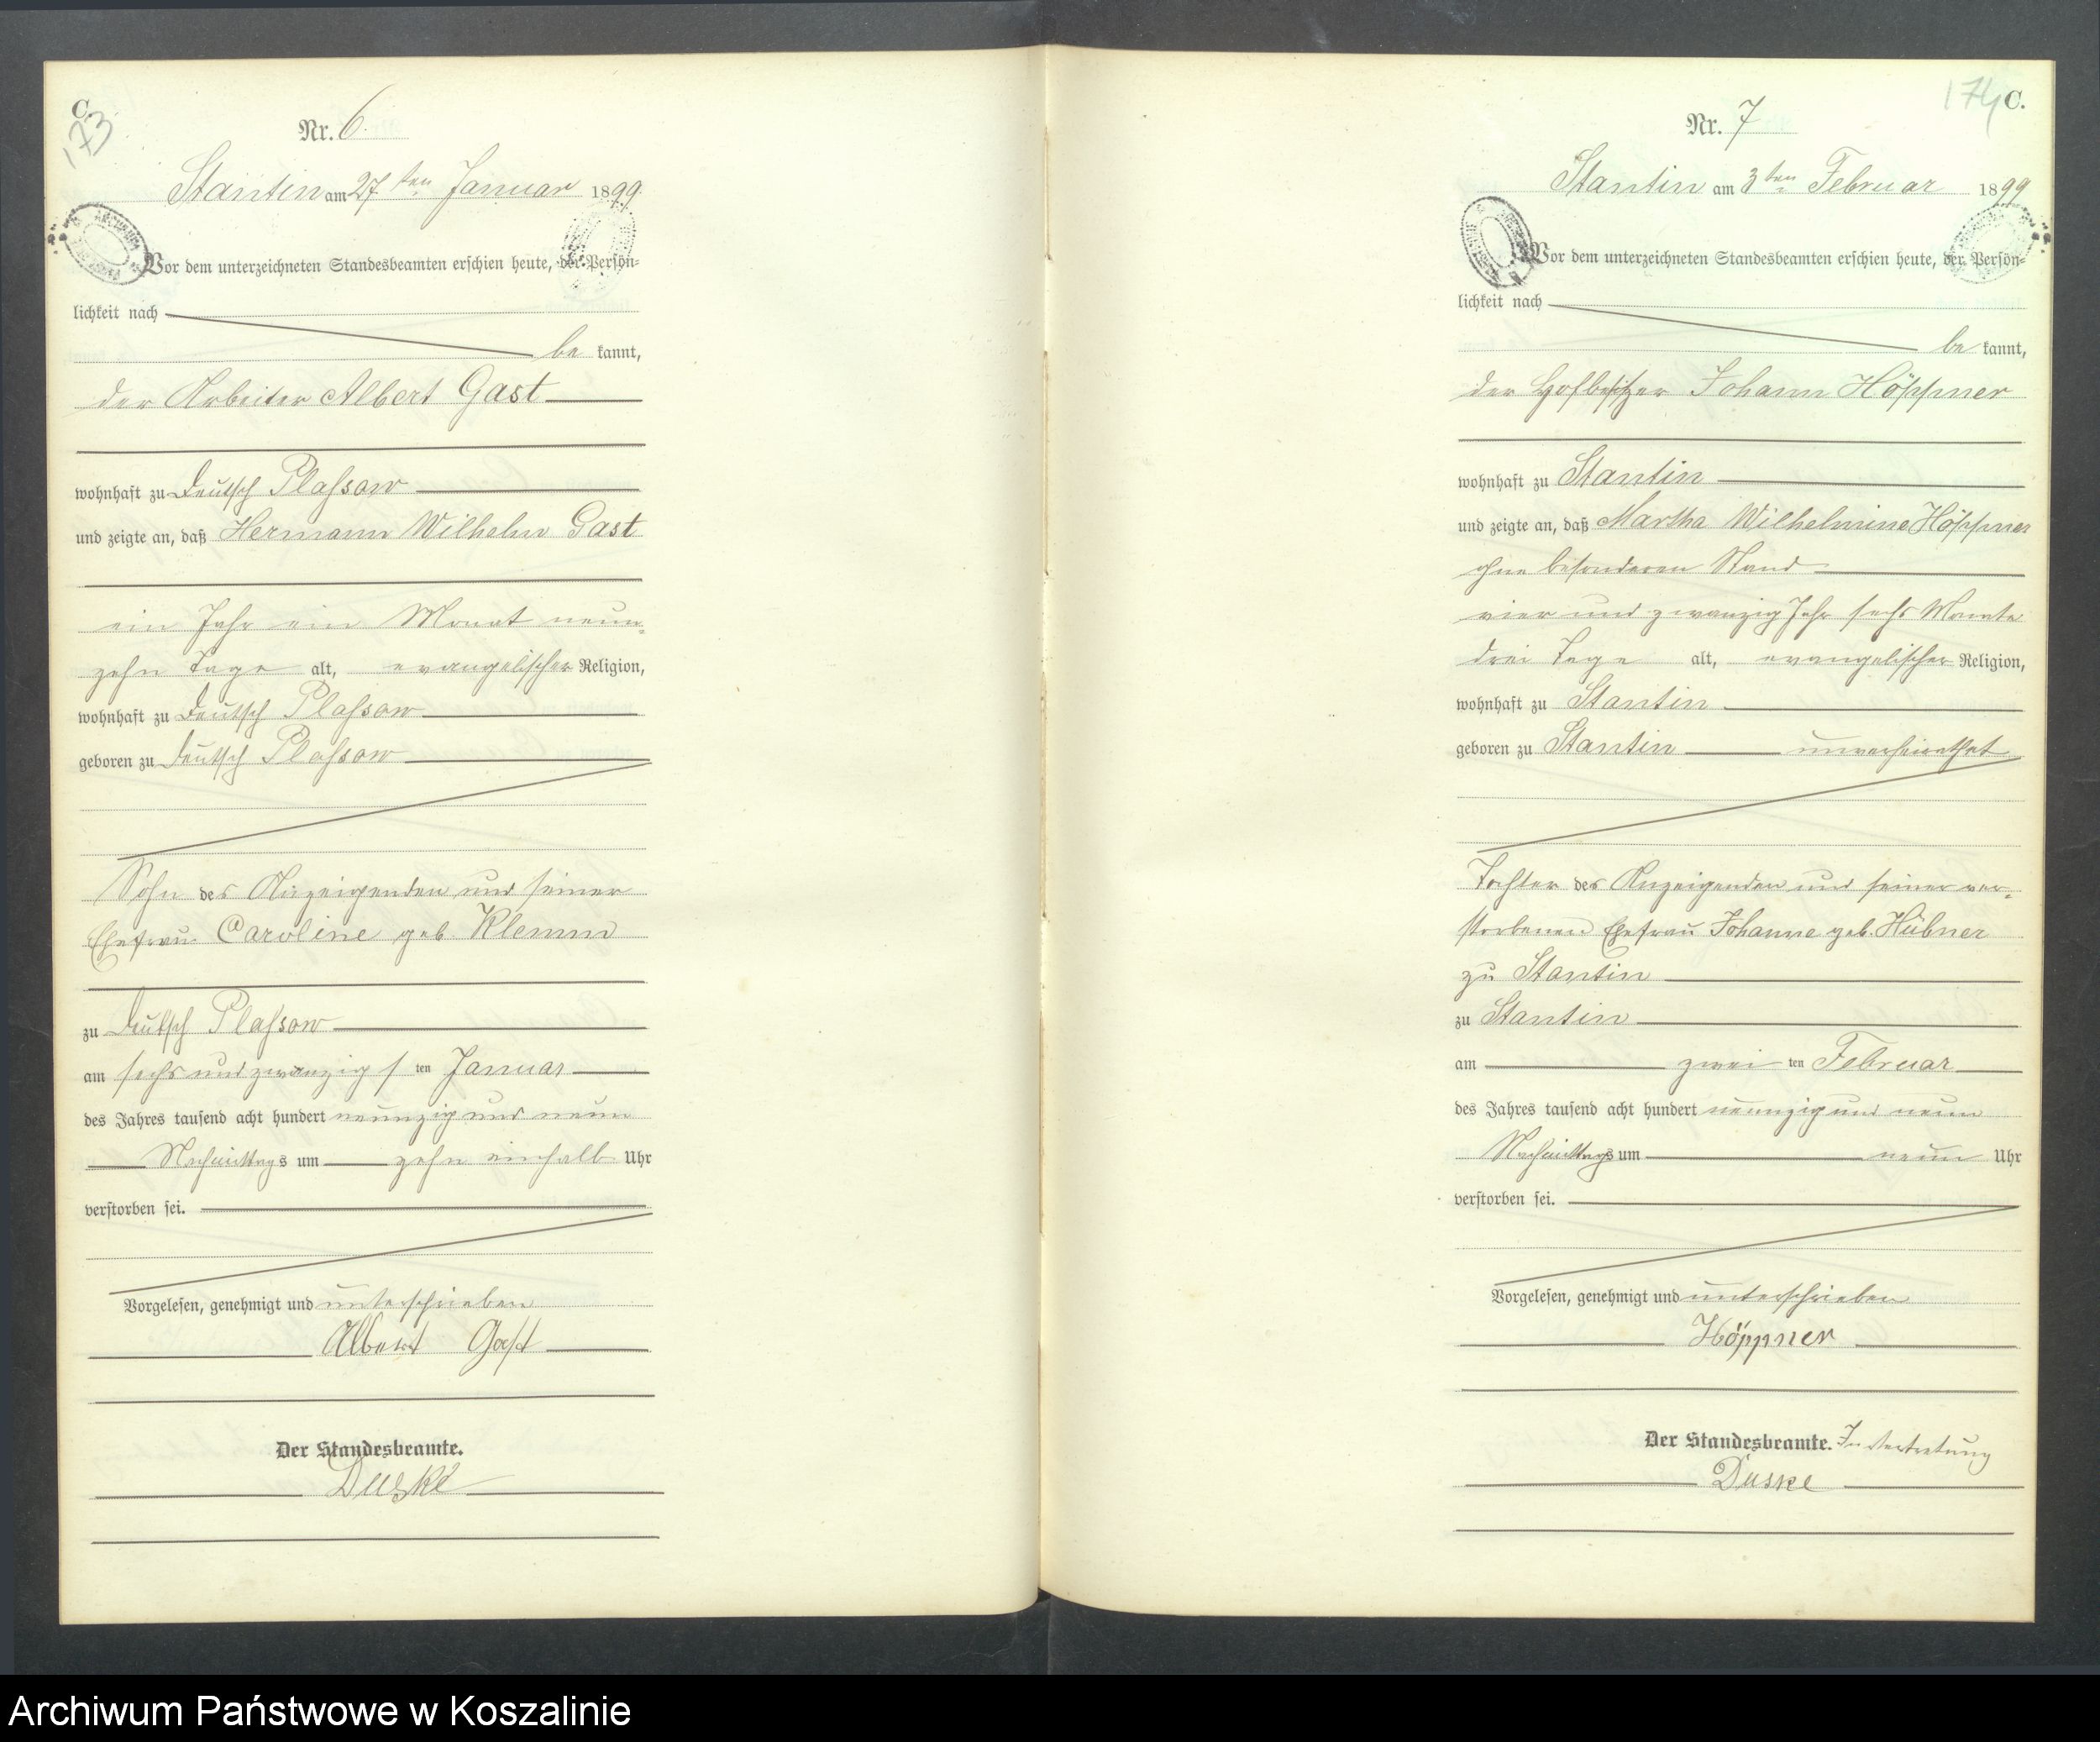 C.
173
Nr. 6.
Stantin am 27ten Januar 1899.
Vor dem unterzeichneten Standesbeamten erschien heute, der Persön=
lichkeit nach
be kannt,
der Arbeiter Albert Gast
wohnhaft zu Deutsch Plassow
und zeigte an, daß Hermann Wilhelm Gast
ein Jahr ein Monat neun=
zehn Tage alt, evangelischer Religion,
wohnhaft zu Deutsch Plassow
geboren zu Deutsch Plassow
Sohn des Anzeigenden und seiner
Ehefrau Caroline geb. Klemm
zu Deutsch Plassow
am sechs und zwanzigsten Januar
des Jahres tausend acht hundert neunzig und neun
Nachmittags um zehn einhalb Uhr
verstorben sei.
Vorgelesen, genehmigt und unterschrieben
Albert Gast
Der Standesbeamte.
Duske
174 C.
Nr. 7
Stantin am 3ten Februar 1899
Vor dem unterzeichneten Standesbeamten erschien heute, der Persön=
lichkeit nach
be kannt,
der Hofbesitzer Johann Höppner
wohnhaft zu Stantin
und zeigte an, daß Martha Wilhelmine Höppner
ohne besonderen Stand
vier und zwanzig Jahr sechs Monate
drei Tage alt, evangelischer Religion,
wohnhaft zu Stantin
geboren zu Stantin unverheirathet
Tochter des Anzeigenden und seiner ver=
storbenen Ehefrau Johanne geb. Hübner
zu Stantin
zu Stantin
am zwei ten Februar
des Jahres tausend acht hundert neunzig und neun
Nachmittags um neun Uhr
verstorben sei.
Vorgelesen, genehmigt und unterschrieben
Höppner
Der Standesbeamte. In Vertretung
Duske
Archiwum Państwowe w Koszalinie